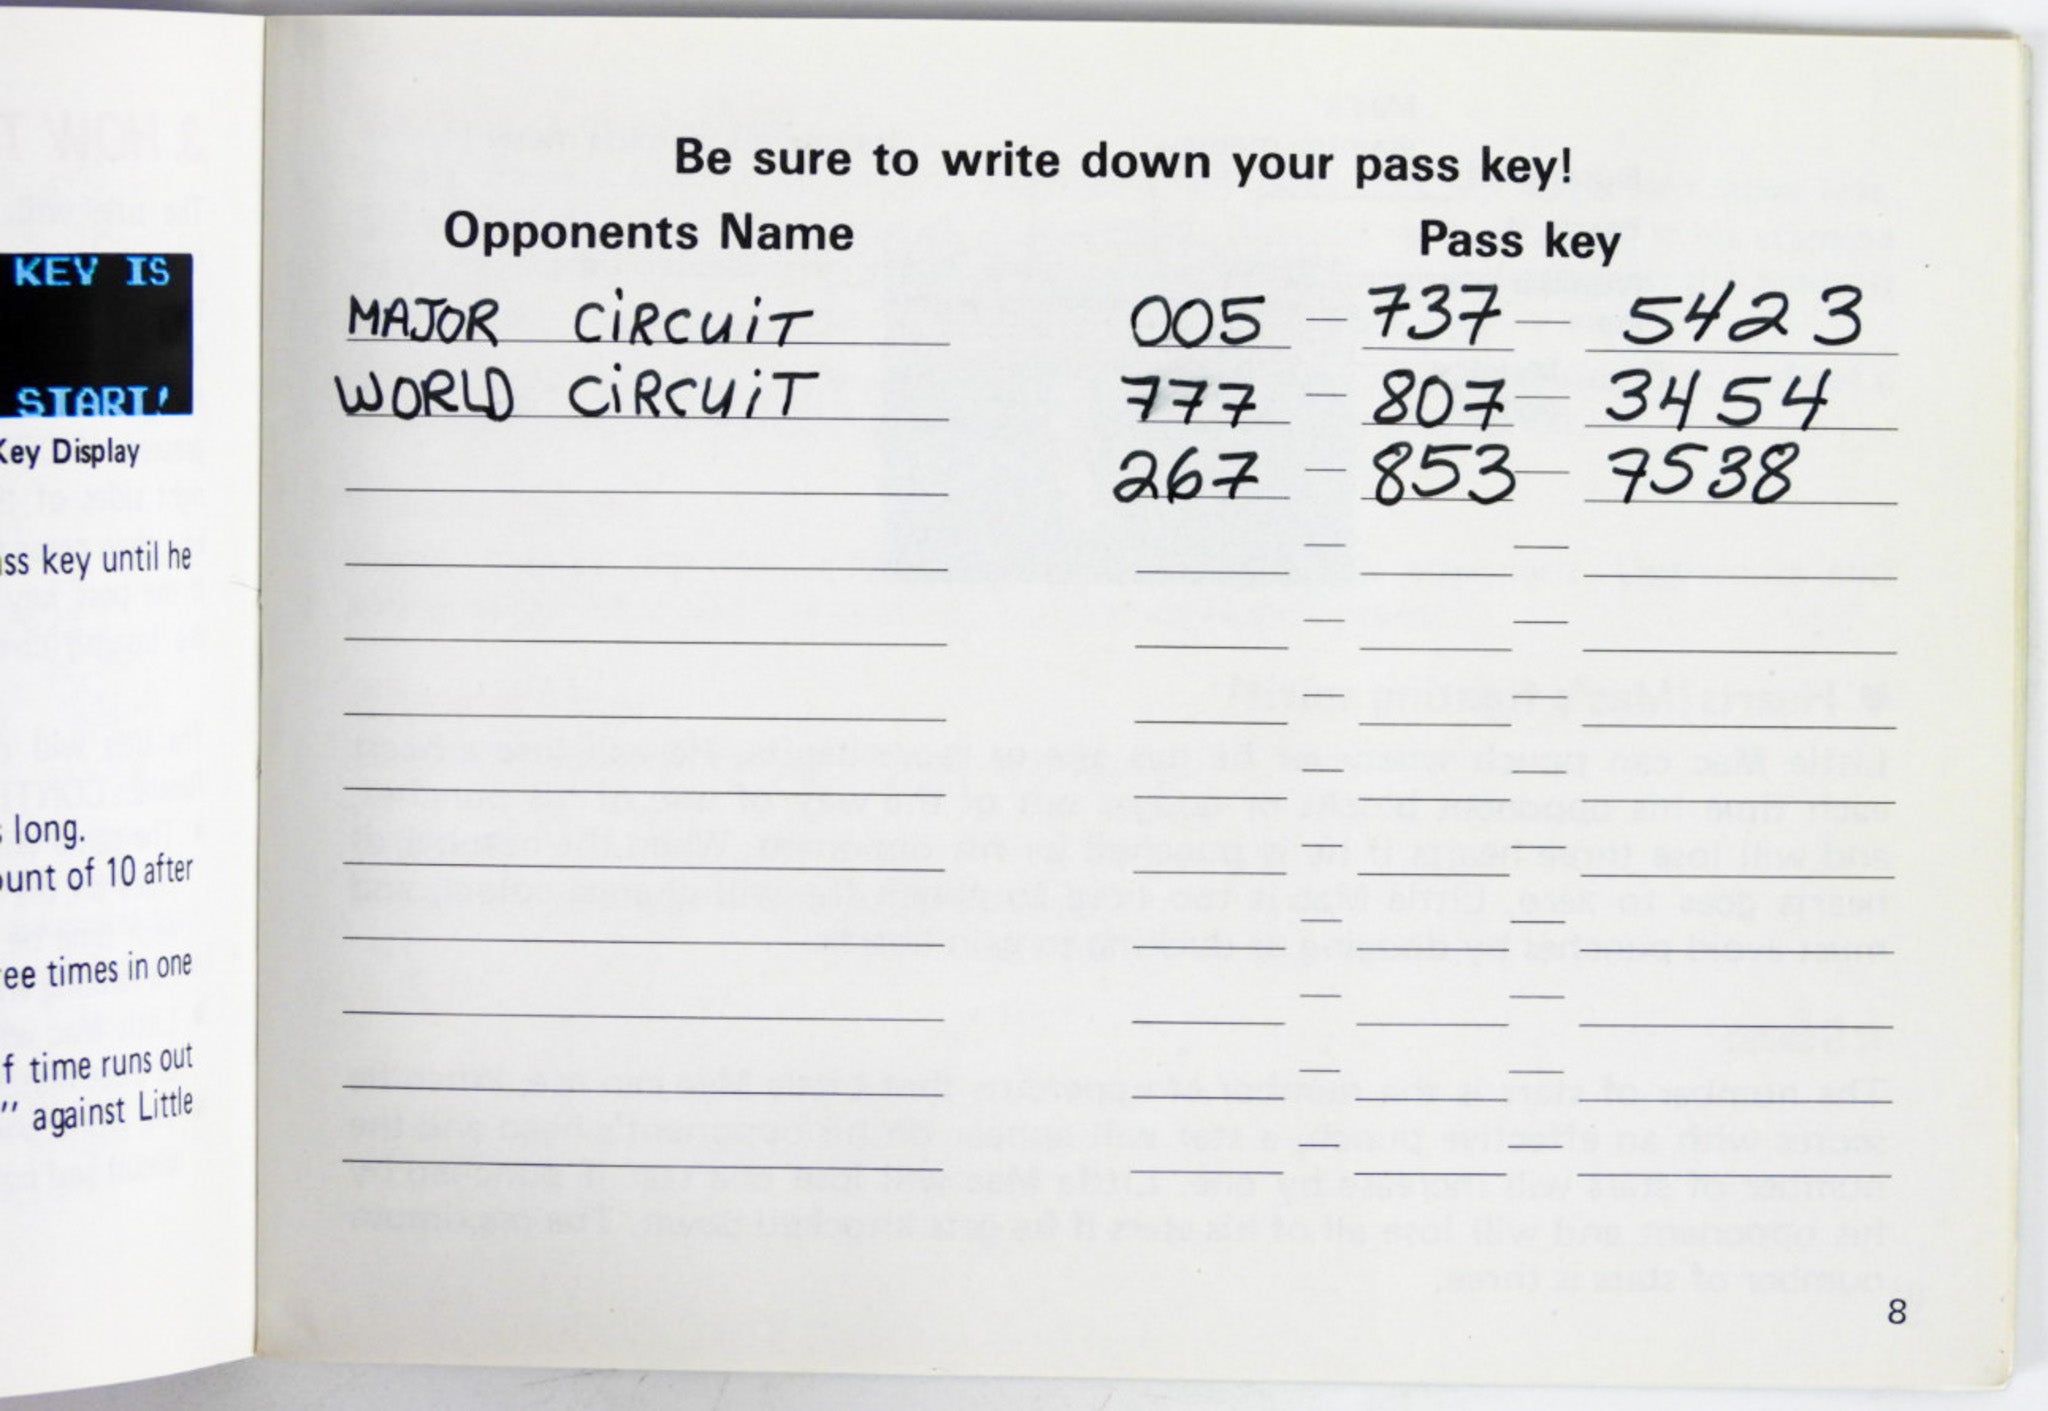 KEY IS
START!
Key Display
ass key until he
s long.
ount of 10 after
ree times in one
f time runs out
" against Little
Be sure to write down your pass key!
Opponents Name Pass key
MAJOR CIRCUIT 005 — 737 — 5423
WORLD CIRCUIT 777 — 807 — 3454
267 — 853 — 7538
8